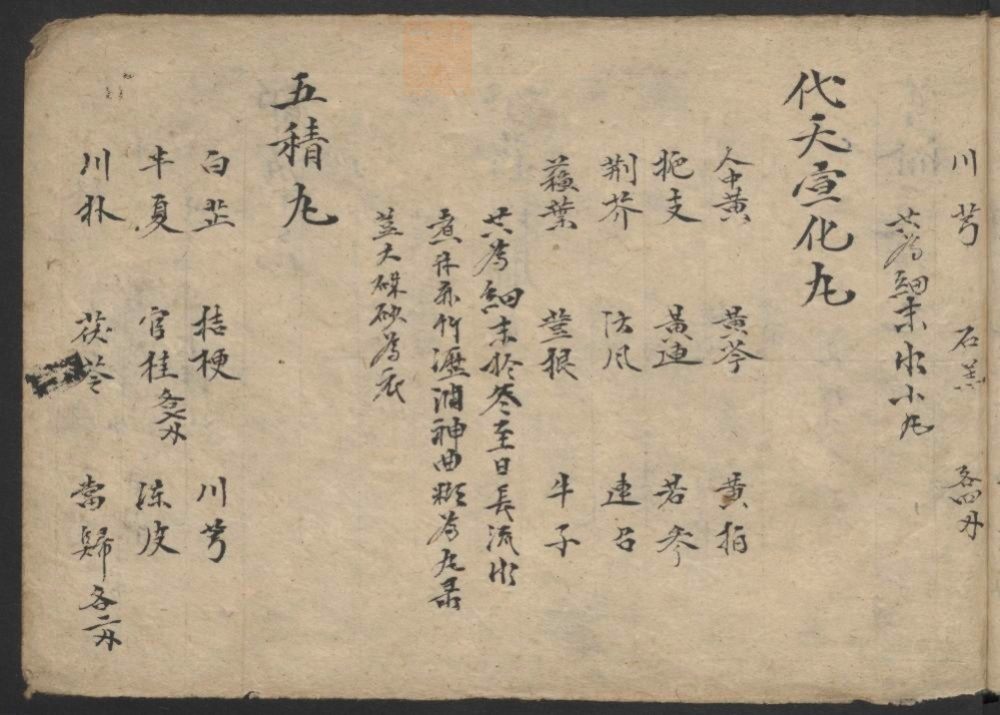 川芎 石羔 各四分
共為細末水小丸
代天宣化丸
人中黄 黄芩 黄柏
栀支 黄連 若参
荆芥 防风 連召
蘓葉 蓝根 牛子
共為細末於冬至日長流水
煮升麻竹瀝調神曲糊為丸
盖大硃砂為衣
五積丸
白芷 桔梗 川芎
半夏 官桂 各分 陈皮
川朴 茯苓 當歸 各二分